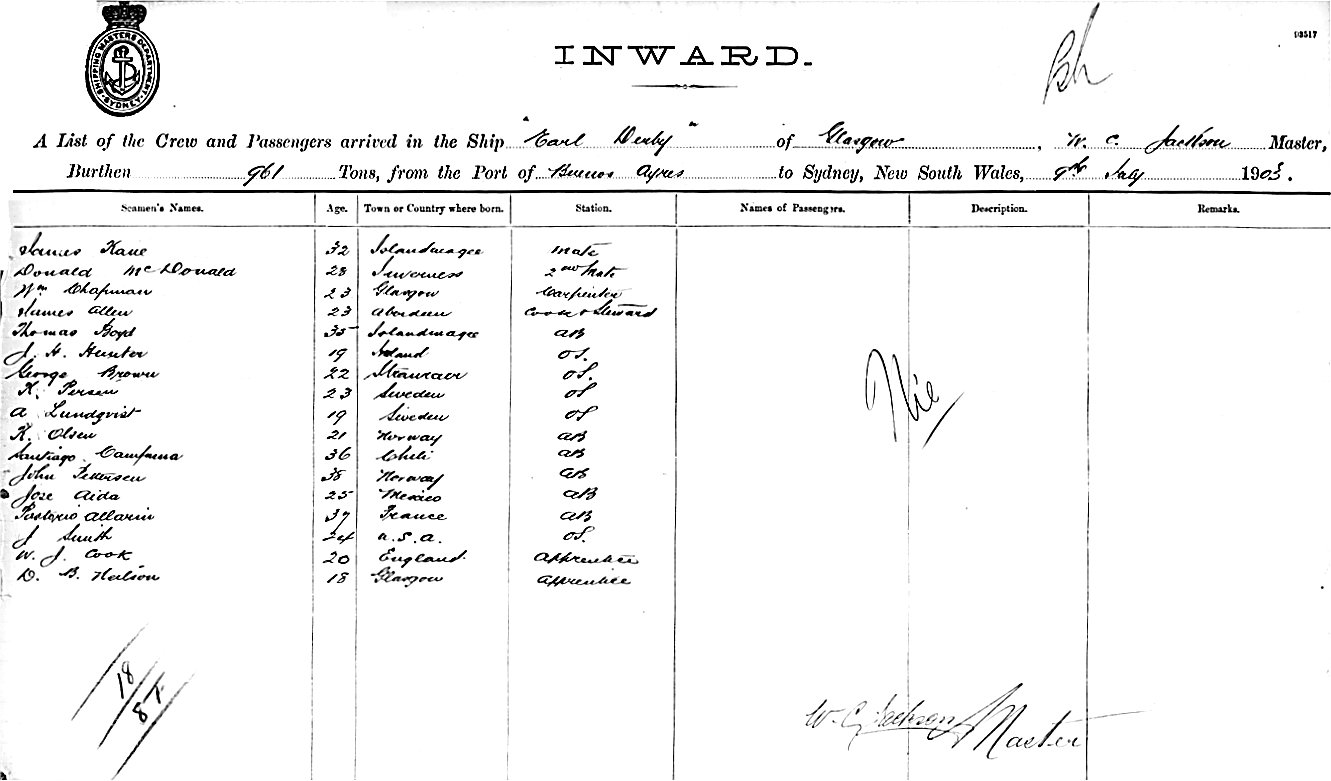 SHIPPING MASTERS DEPARTMENT SYDNEY
93517
INWARD.
A List of the Crew and Passengers arrived in the Ship "Earl Derby" of Glasgow, W. C. Jackson Master,
Burthen 961 Tons, from the Port of Buenos Ayres to Sydney, New South Wales, 9th July 1903.
Seamen's Names. Age. Town or Country where born. Station. Names of Passengers. Description. Remarks.
James Kane 32 Islandmagee Mate
Donald McDonald 28 Inverness 2nd Mate
Wm Chapman 23 Glasgow Carpenter
James Allen 23 Aberdeen Cook & Steward
Thomas Boyd 35 Islandmagee AB
J. H. Hunter 19 Ireland OS.
George Brown 22 Stranraer OS.
K. Persen 23 Sweden OS
A Lundqvist 19 Sweden OS
K. Olsen 21 Norway AB
Santiago Campana 36 Chili AB
John Pettersen 38 Norway AB
Jose Aida 25 Mexico AB
Allarin 37 France AB
J Smith 24 U.S.A. OS.
W. J. Cook 20 England Apprentice
D. B. Neilson 18 Glasgow Apprentice
18
W. C. Jackson Master